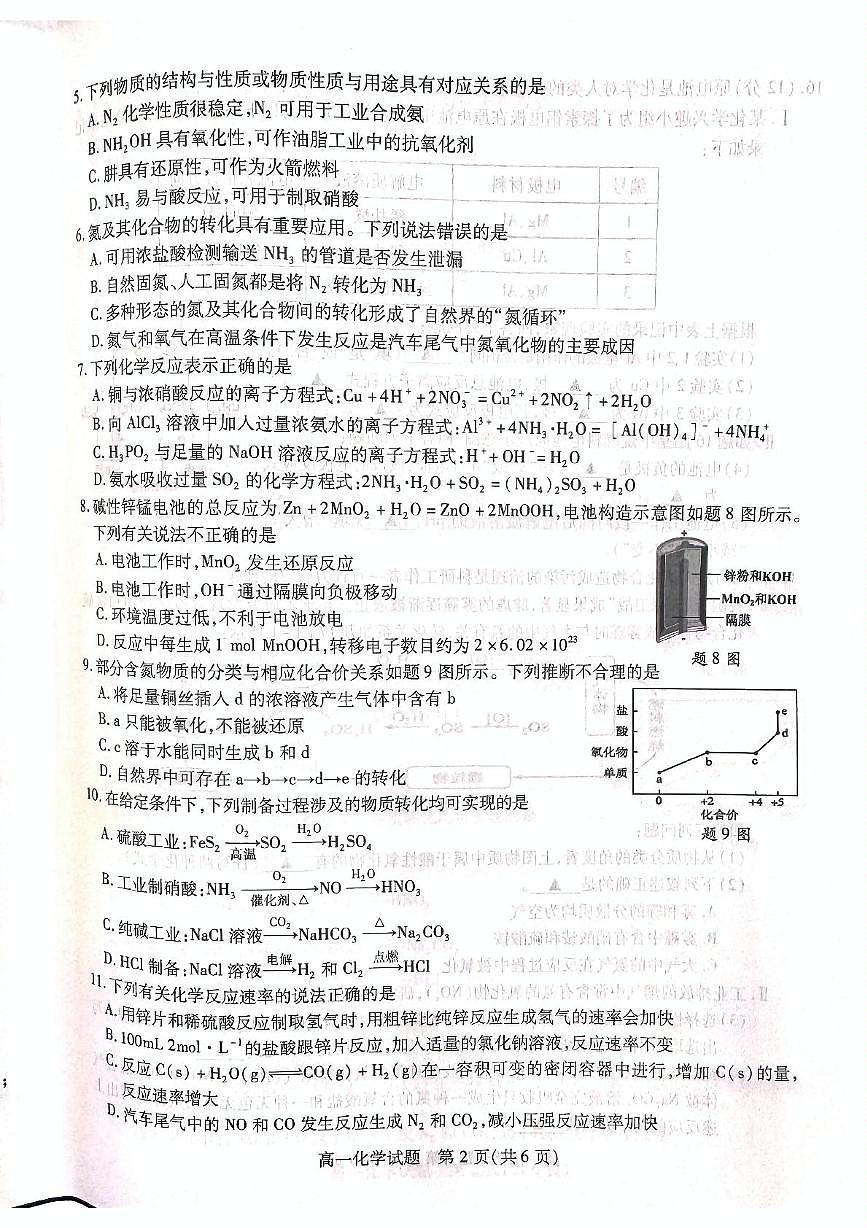 5.下列物质的结构与性质或物质性质与用途具有对应关系的是
A.N₂ 化学性质很稳定,N₂ 可用于工业合成氨
B.NH₂OH 具有氧化性,可作油脂工业中的抗氧化剂
C.肼具有还原性,可作为火箭燃料
D.NH₃ 易与酸反应,可用于制取硝酸
6.氮及其化合物的转化具有重要应用。下列说法错误的是
A.可用浓盐酸检测输送 NH₃ 的管道是否发生泄漏
B.自然固氮、人工固氮都是将 N₂ 转化为 NH₃
C.多种形态的氮及其化合物间的转化形成了自然界的“氮循环”
D.氮气和氧气在高温条件下发生反应是汽车尾气中氮氧化物的主要成因
7.下列化学反应表示正确的是
A.铜与浓硝酸反应的离子方程式:Cu + 4H⁺ + 2NO₃⁻ = Cu²⁺ + 2NO₂↑ + 2H₂O
B.向 AlCl₃ 溶液中加入过量浓氨水的离子方程式:Al³⁺ + 4NH₃·H₂O = [Al(OH)₄]⁻ + 4NH₄⁺
C.H₃PO₂ 与足量的 NaOH 溶液反应的离子方程式:H⁺ + OH⁻ = H₂O
D.氨水吸收过量 SO₂ 的化学方程式:2NH₃·H₂O + SO₂ = (NH₄)₂SO₃ + H₂O
8.碱性锌锰电池的总反应为 Zn + 2MnO₂ + H₂O = ZnO + 2MnOOH,电池构造示意图如题 8 图所示。
下列有关说法不正确的是
A.电池工作时,MnO₂ 发生还原反应
B.电池工作时,OH⁻ 通过隔膜向负极移动
C.环境温度过低,不利于电池放电
D.反应中每生成 1 mol MnOOH,转移电子数目约为 2×6.02×10²³
+
锌粉和KOH
MnO₂和KOH
隔膜
-
题 8 图
9.部分含氮物质的分类与相应化合价关系如题 9 图所示。下列推断不合理的是
A.将足量铜丝插入 d 的浓溶液产生气体中含有 b
B.a 只能被氧化,不能被还原
C.c 溶于水能同时生成 b 和 d
D.自然界中可存在 a→b→c→d→e 的转化
盐
酸
氧化物
单质
a
b
c
d
e
0 +2 +4 +5
化合价
题 9 图
10.在给定条件下,下列制备过程涉及的物质转化均可实现的是
A.硫酸工业:FeS₂ —O₂/高温→ SO₂ —H₂O→ H₂SO₄
B.工业制硝酸:NH₃ —O₂/催化剂、△→ NO —H₂O→ HNO₃
C.纯碱工业:NaCl 溶液 —CO₂→ NaHCO₃ —△→ Na₂CO₃
D.HCl 制备:NaCl 溶液 —电解→ H₂ 和 Cl₂ —点燃→ HCl
11.下列有关化学反应速率的说法正确的是
A.用锌片和稀硫酸反应制取氢气时,用粗锌比纯锌反应生成氢气的速率会加快
B.100mL 2mol·L⁻¹的盐酸跟锌片反应,加入适量的氯化钠溶液,反应速率不变
C.反应 C(s) + H₂O(g)⇌CO(g) + H₂(g)在一容积可变的密闭容器中进行,增加 C(s)的量,
反应速率增大
D.汽车尾气中的 NO 和 CO 发生反应生成 N₂ 和 CO₂,减小压强反应速率加快
高一化学试题 第 2 页(共 6 页)